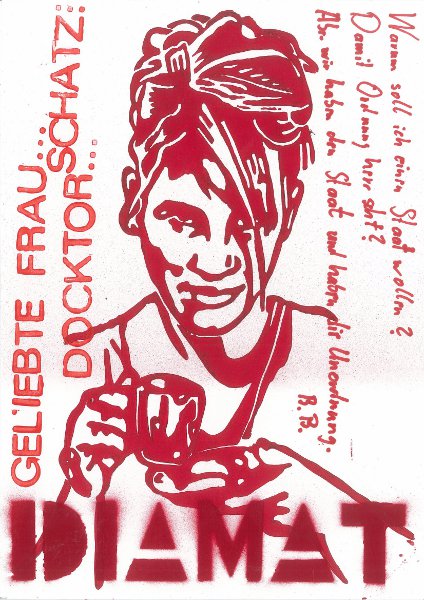 GELIEBTE FRAU...
DOCKTOR SCHATZ:
...
Warum soll ich einen Staat wollen?
Damit Ordnung herrscht?
Aber wir haben den Staat und haben die Unordnung.
B.B.
DIAMAT